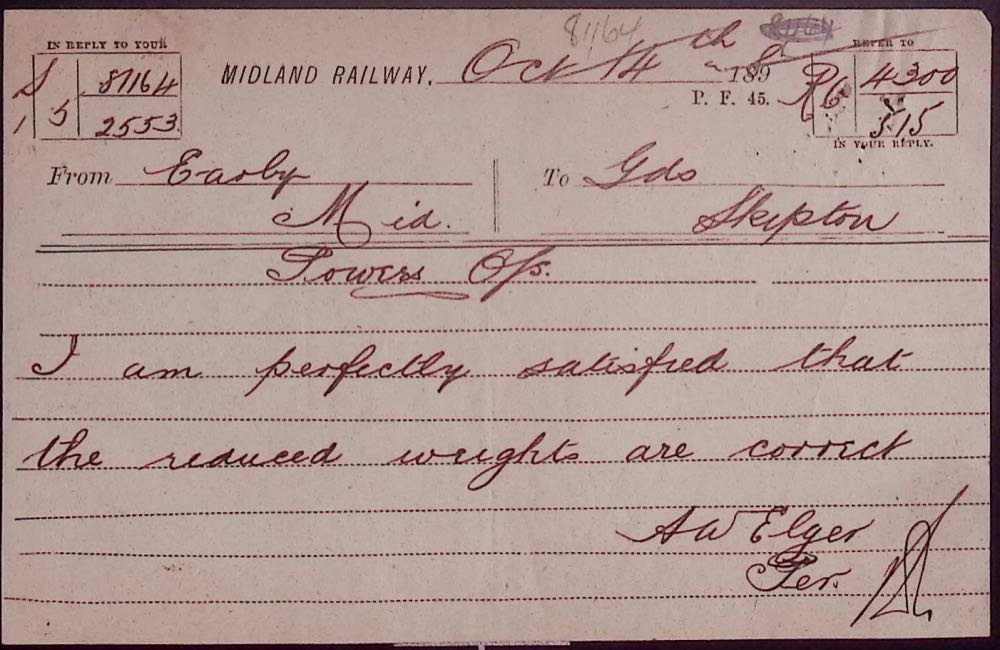 81164
IN REPLY TO YOUR
S 81164
1 5 2553
MIDLAND RAILWAY, Oct 14th 189
P. F. 45.
REFER TO
4300
515
IN YOUR REPLY.
From Earby
Mid.
To Gds
Skipton
Towers Ops.
I am perfectly satisfied that
the reduced weights are correct
A W Elger
Per.